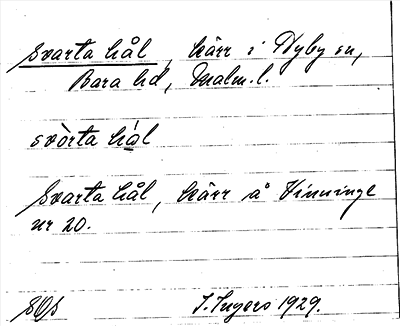 Svarta hål, kärr i Hyby sn,
Bara hd, Malm. l.
svòrta hál
Svarta hål, kärr å Vinninge
nr 20.
I. Ingers 1929.